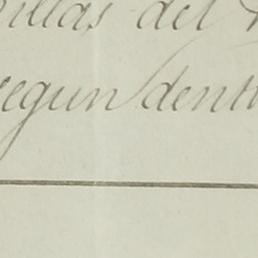 illas del
segun dent